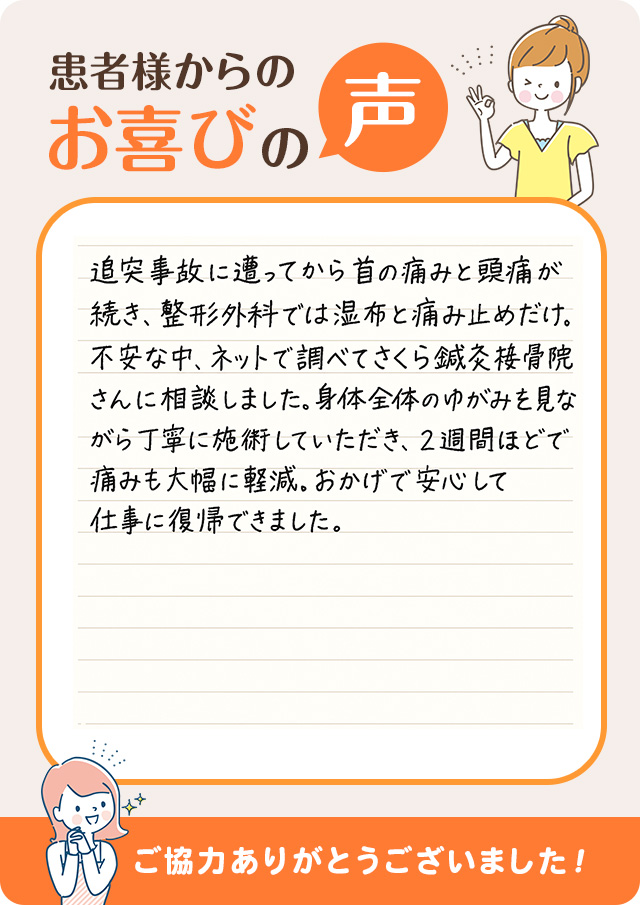 患者様からの
お喜びの声
追突事故に遭ってから首の痛みと頭痛が
続き、整形外科では湿布と痛み止めだけ。
不安な中、ネットで調べてさくら鍼灸接骨院
さんに相談しました。身体全体のゆがみを見な
がら丁寧に施術していただき、2週間ほどで
痛みも大幅に軽減。おかげで安心して
仕事に復帰できました。
ご協力ありがとうございました!